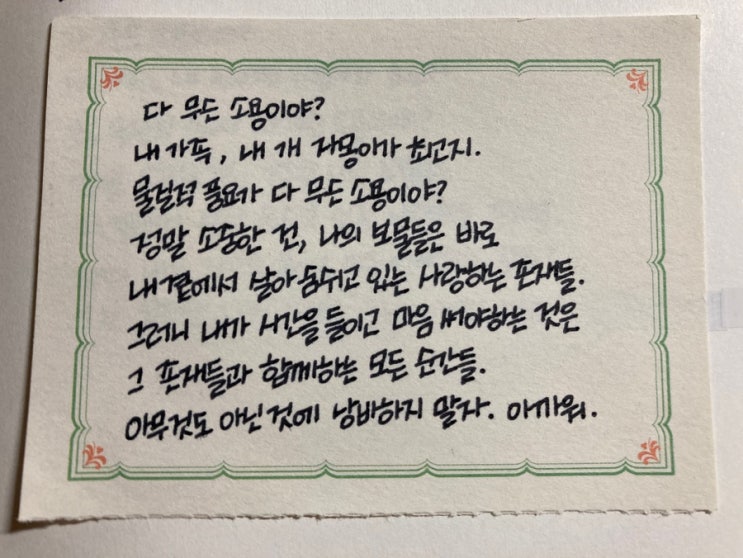 다 무슨 소용이야?
내 가족, 내 개 자몽이가 최고지.
물질적 풍요가 다 무슨 소용이야?
정말 소중한 건, 나의 보물들은 바로
내 곁에서 살아 숨쉬고 있는 사랑하는 존재들.
그러니 내가 시간을 들이고 마음 써야하는 것은
그 존재들과 함께하는 모든 순간들.
아무것도 아닌 것에 낭비하지 말자. 아까워.